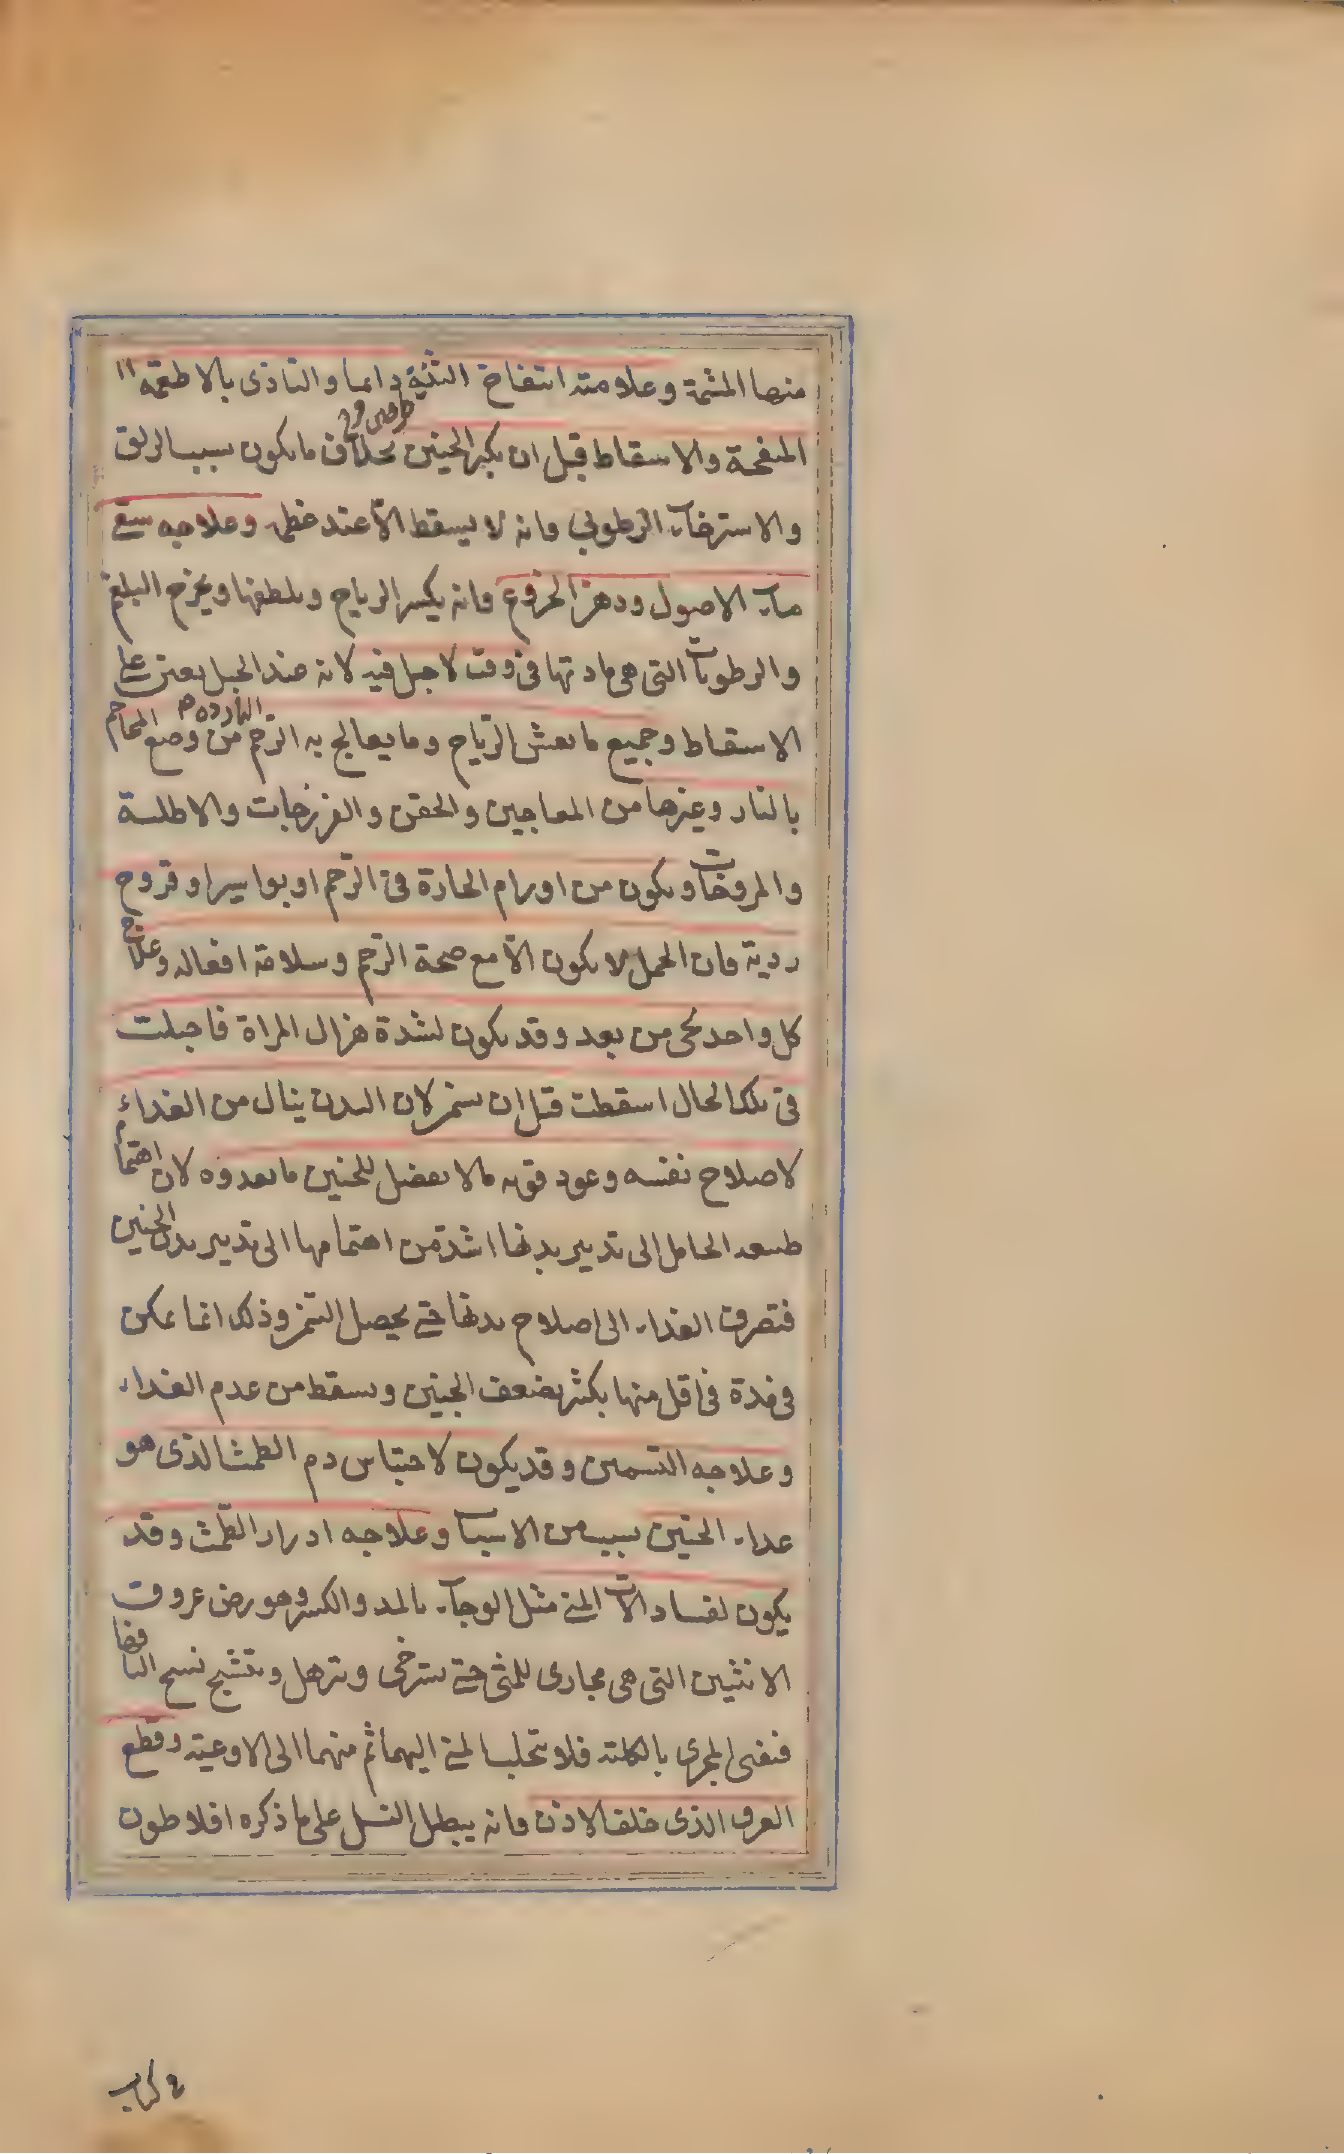 منها المشيمة وعلامته انتفاخ الثنّة دائما والتاذى بالاطعمة
المنفخة والاسقاط قبل ان يكبر الجنين بخلاف ما يكون بسبب الزلق
والاسترخاء الرطوبي فانه لا يسقط الّا عند عظمه وعلاجه سقي
ماء الاصول ودهن الخروع فانه يكسر الرياح ويلطفها ويخرج البلغم
والرطوبات التى هى مادتها فى وقت لا حبل فيه لانه عند الحبل يعين على
الاسقاط وجميع ما يفش الرّياح وما يعالج به الرّحم الباردة من وضع المحاجم
بالنار وغيرها من المعاجين والحقن والفرزجات والاطلية
والمروخات ويكون من اورام الحادة فى الرّحم او بواسير او قروح
ردية فان الحمل لا يكون الّا مع صحة الرّحم وسلامة افعاله وعلاج
كل واحد يجى من بعد وقد يكون لشدة هزال المراة فاحبلت
فى تلك الحال اسقطت قبل ان تسمن لان البدن ينال من الغذاء
لاصلاح نفسه وعود قوته مالا يفضل للجنين ما يغذوه لان اهتمام
طبيعة الحامل الى تدبير بدنها اشد من اهتمامها الى تدبير بدن الجنين
فتصرف الغذاء الى اصلاح بدنها حتى يحصل التسمن وذلك انما يمكن
فى مدة فى اقل منها بكثير يضعف الجنين ويسقط من عدم الغذاء
وعلاجه التسمين وقد يكون لاحتباس دم الطمث الذى هو
غذاء الجنين بسبب من الاسباب وعلاجه ادرار الطّمث وقد
يكون لفساد الآت المنى مثل الوجاء بالمد والكسر وهو رض عروق
الانثيين التى هى مجارى للمنى حتى يسترخى ويترهل ويتشنج
المجرى بالكلية فلا يتحلب المنى اليهما ثم منهما الى الاوعية وقطع
العرق الذى خلف الاذن فانه يبطل النسل على ما ذكره افلاطون